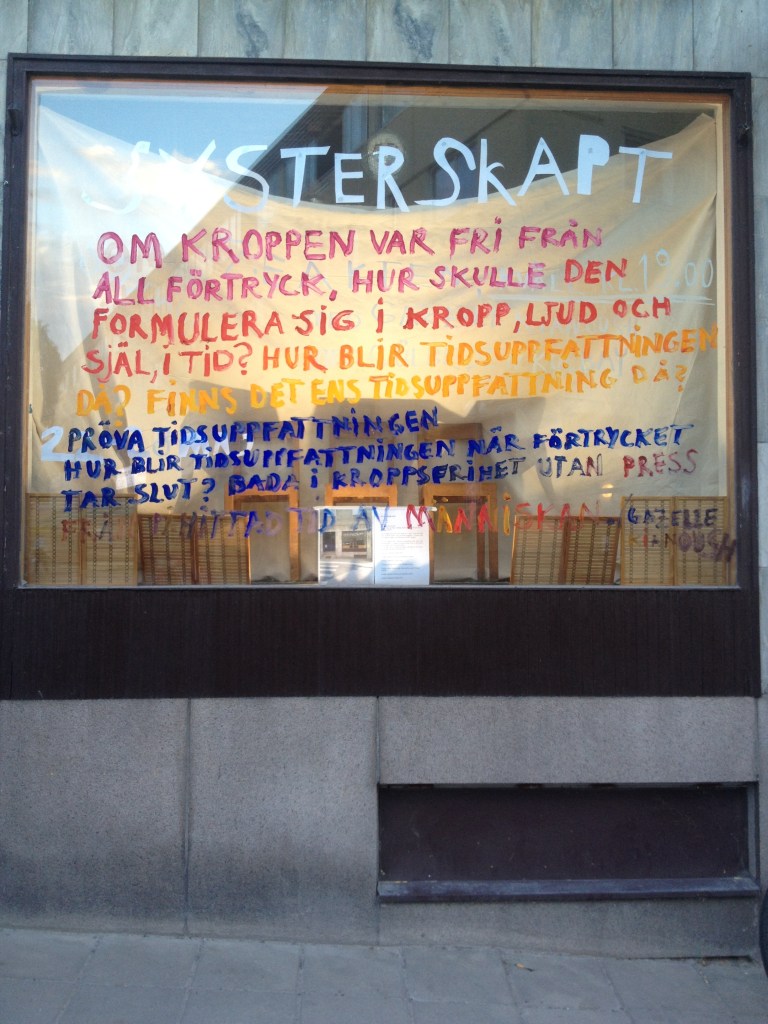 SYSTERSKAPT
OM KROPPEN VAR FRI FRÅN
ALL FÖRTRYCK, HUR SKULLE DEN
FORMULERA SIG I KROPP, LJUD OCH
SJÄL, I TID? HUR BLIR TIDSUPPFATTNINGEN
DÅ? FINNS DET ENS TIDSUPPFATTNING DÅ?
PRÖVA TIDSUPPFATTNINGEN
HUR BLIR TIDSUPPFATTNINGEN NÄR FÖRTRYCKET
TAR SLUT? BADA I KROPPSFRIHET UTAN PRESS
FRÅN PÅHITTAD TID AV MÄNNISKAN. GAZELLE
KIANOUSH